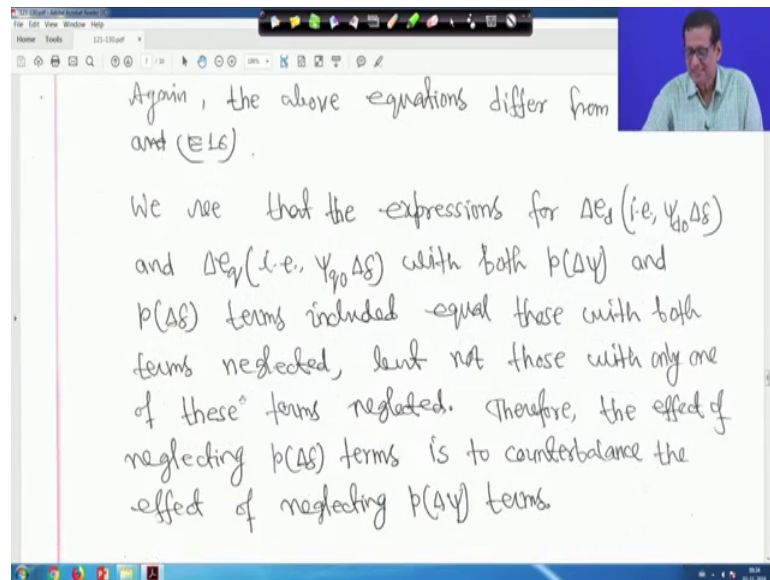 121-130.pdf - Adobe Acrobat Reader DC
File Edit View Window Help
Home Tools 121-130.pdf ×
Again, the above equations differ from
and (E16).
We see that the expressions for Δe_d (i.e., ψ_do Δδ)
and Δe_q (i.e., ψ_qo Δδ) with both p(Δψ) and
p(Δδ) terms included equal those with both
terms neglected, but not those with only one
of these terms neglated. Therefore, the effect of
neglecting p(Δδ) terms is to counterbalance the
effect of neglecting p(Δψ) terms.